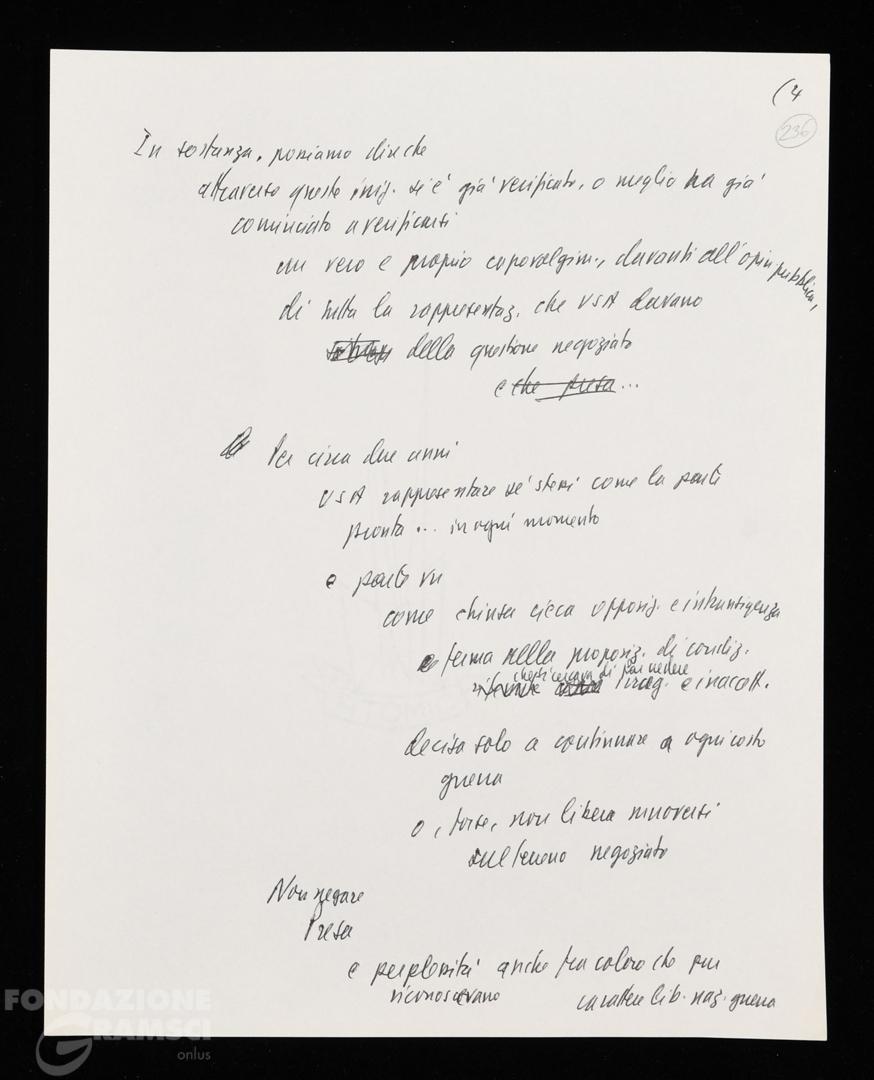 (4
236
In sostanza, possiamo dire che
attraverso queste iniz. si è già verificato, o meglio ha già
cominciato a verificarsi
un vero e proprio capovolgim., davanti all'opin. pubblica,
di tutta la rappresentaz. che USA davano
della questione negoziato
e che presa ...
Per circa due anni
USA rappresentare sé stessi come la parte
pronta ... in ogni momento
e parte VN
come chiusa cieca opposiz. e intransigenza
e ferma nella proposiz. di condiz.
che si cercava di far vedere
irrag. e inaccett.
decisa solo a continuare a ogni costo
guerra
o, forse, non libera muoversi
sul terreno negoziato
Non negare
Presa
e perplessità anche tra coloro che pur
riconoscevano carattere lib. naz. guerra
FONDAZIONE
GRAMSCI
onlus